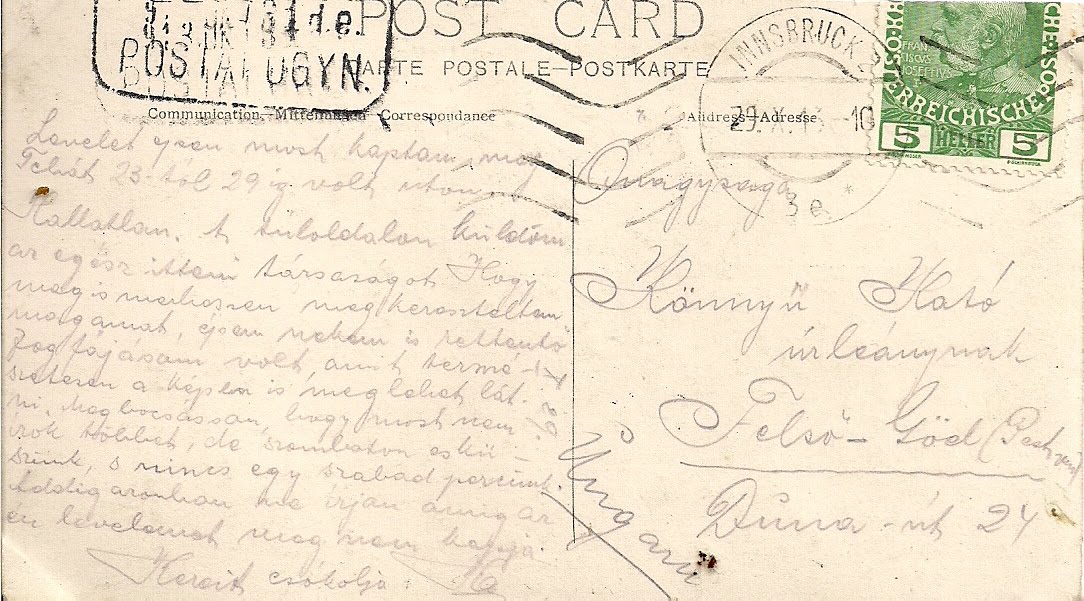 POST CARD
CARTE POSTALE–POSTKARTE
POSTAI ÜGYN.
Communication–Mitteilung–Correspondance
Address–Adresse
INNSBRUCK 2
29.X.13–10
3e
*
FRAN
CISCUS
IOSEPHVS
ÖSTERREICHISCHE POST
5 HELLER 5
Levelet épen most kaptam meg
Tehát 23-tól 29 ig volt úton.
Hallatlan. A túloldalon küldöm
az egész itteni társaságot. Hogy
meg kereszteltem
magamat, épen nekem is rettentő
Fogfájásom volt, amit termé-
szetesen a képen is meglehet lát-
ni. Megbocsásson, hogy most nem
írok többet, de szombaton eskü-
szünk, s nincs egy szabad percünk.
Addig azonban ne írjon amíg az
én levelemet meg nem kapja.
Kezeit csókolja:
Nagysága
Könnyű Kató
úrleánynak
Felső–Göd (Pest
Duna-út 24
Ungarn